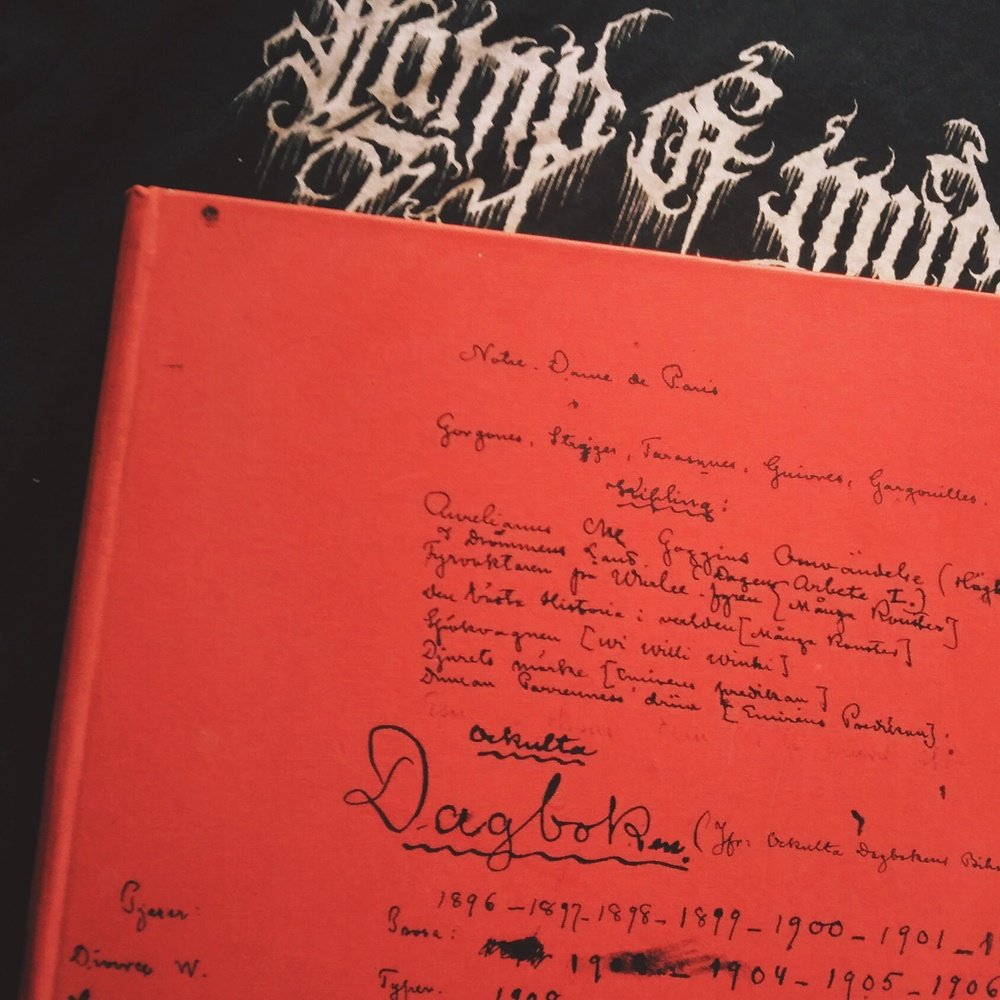 Lamp Of
Notre-Dame de Paris
Gorgones, Stryges, Tarasques, Guivres, Gargouilles.
Kipling:
Aurelianus Mc Goggins Omvändelse (Högl
I Drömmens Land. (Dagens Arbete I.)
Fyrvaktaren på Wurlee-fyren [Många Konster]
den bästa Historia i verlden [Många Konster]
[Wi Willi Winki]
Djurets märke [Emirens predikan]
Duncan Parrenness' dröm [Emirens Predikan].
Ockulta
Dagboken. (Jfr: Ockulta Dagbokens Biha
1896-1897-1898-1899-1900-1901-1
Pjeser:
1904-1905-1906
Divorce W.
Typer.
1908